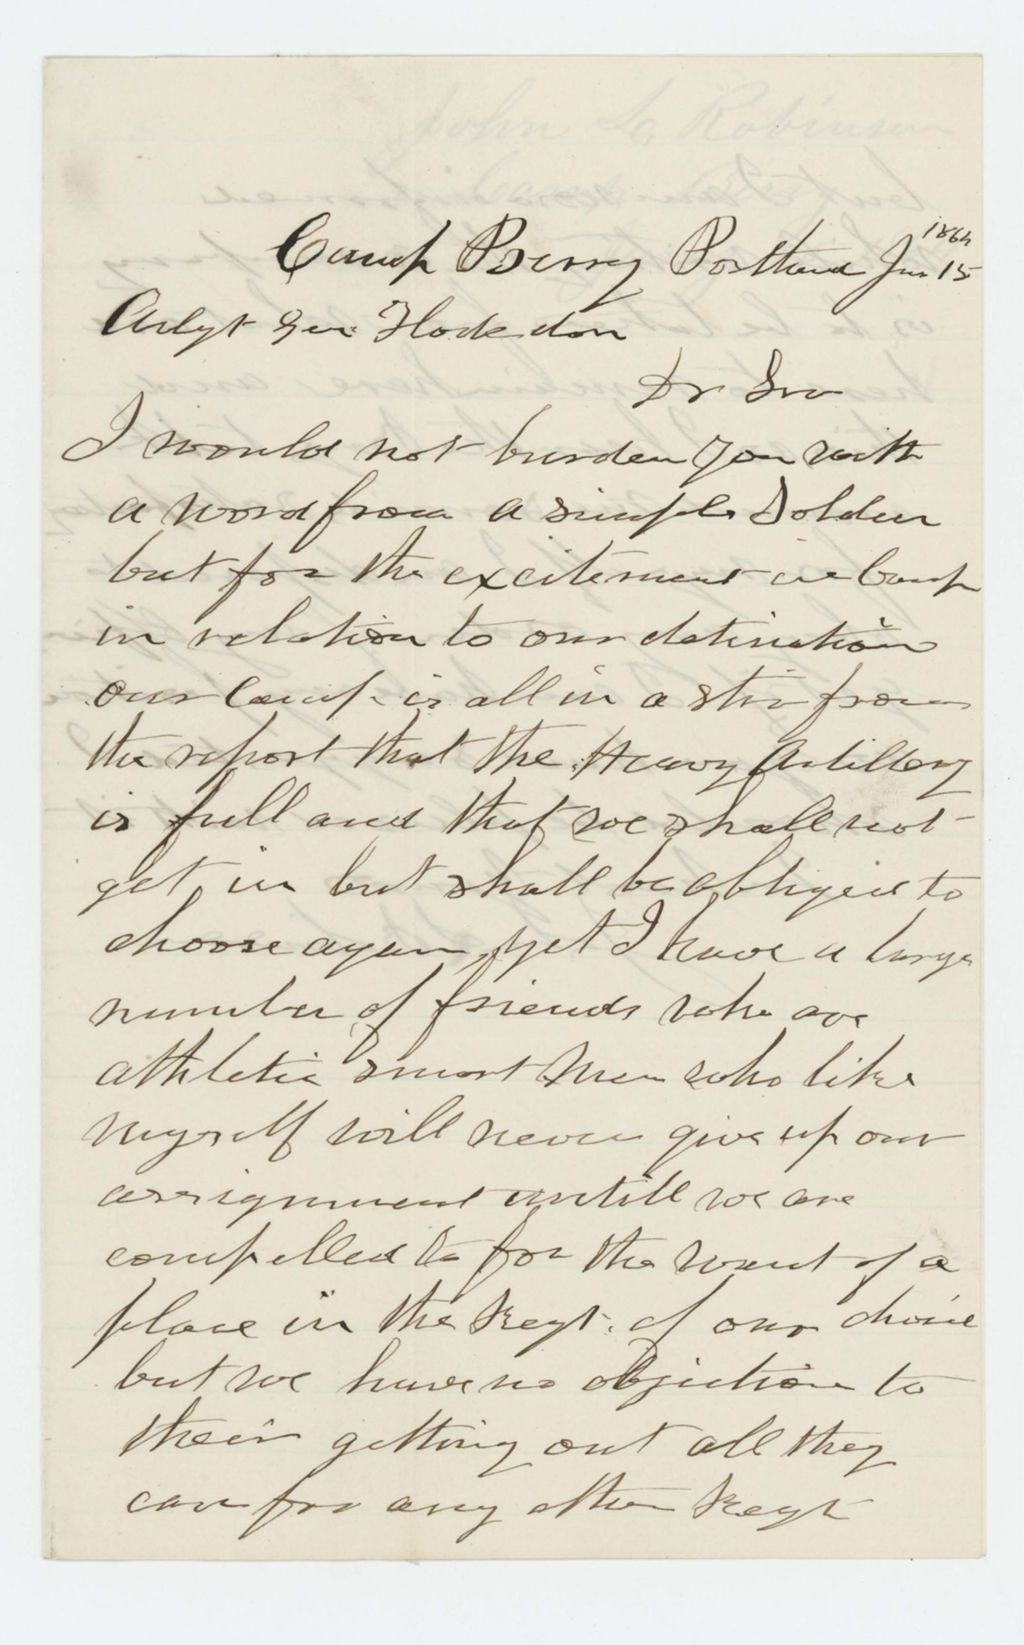 1864
Camp Berry Portland Jan 15
Adgt Gen Hodsdon
Dr Sir
I would not burden you with
a word from a simple Solder
but for the excitement in Camp
in relation to our detination
our Camp is all in a stir from
the report that the Heavy Artillery
is full and that we shall not
get in but shall be obliged to
choose again, yet I have a large
number of friends who are
athletic smart Men who like
myself will never give up our
assignment untill we are
compelled to for the want of a
place in the Regt. of our choice
but we have no objection to
their getting out all they
can for any other Regt